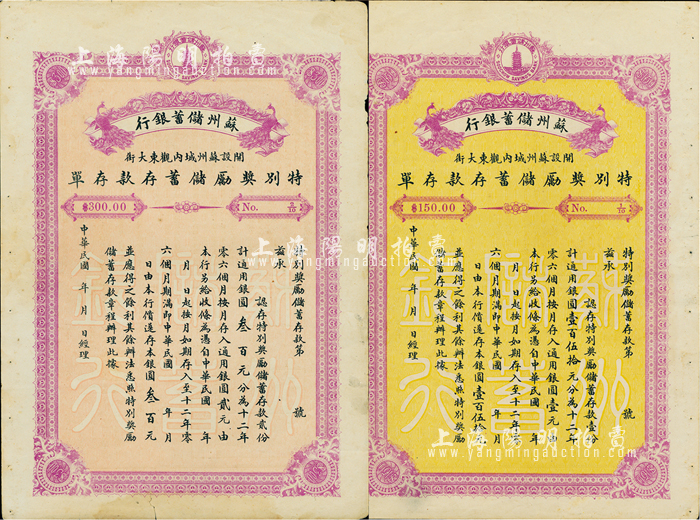 蘇州儲蓄銀行
開設蘇州城內觀東大街
特別獎勵儲蓄存款存單
$300.00
No.
特別獎勵儲蓄存款第　號
茲承　認存特別獎勵儲蓄存款貳份
計通用銀圓叁百元分為十二年
零六個月按月存入通用銀圓貳元由
本行另給收條為憑自中華民國　年
月　日起按月如期存入至十二年零
六個月期滿即中華民國　年　月
日由本行償還存本銀圓叁百元
並應得之餘利其餘辦法悉照特別獎勵
儲蓄存款章程辦理此據
中華民國　年　月　日經理
蘇州儲蓄銀行
開設蘇州城內觀東大街
特別獎勵儲蓄存款存單
$150.00
No.
特別獎勵儲蓄存款第　號
茲承　認存特別獎勵儲蓄存款壹份
計通用銀圓壹百伍拾元分為十二年
零六個月按月存入通用銀圓壹元由
本行另給收條為憑自中華民國　年
月　日起按月如期存入至十二年零
六個月期滿即中華民國　年　月
日由本行償還存本銀圓壹百伍拾元
並應得之餘利其餘辦法悉照特別獎勵
儲蓄存款章程辦理此據
中華民國　年　月　日經理
上海陽明拍賣
www.yangmingauction.com
上海陽明拍賣
www.yangmingauction.com
上海陽明拍賣
www.yangmingauction.com